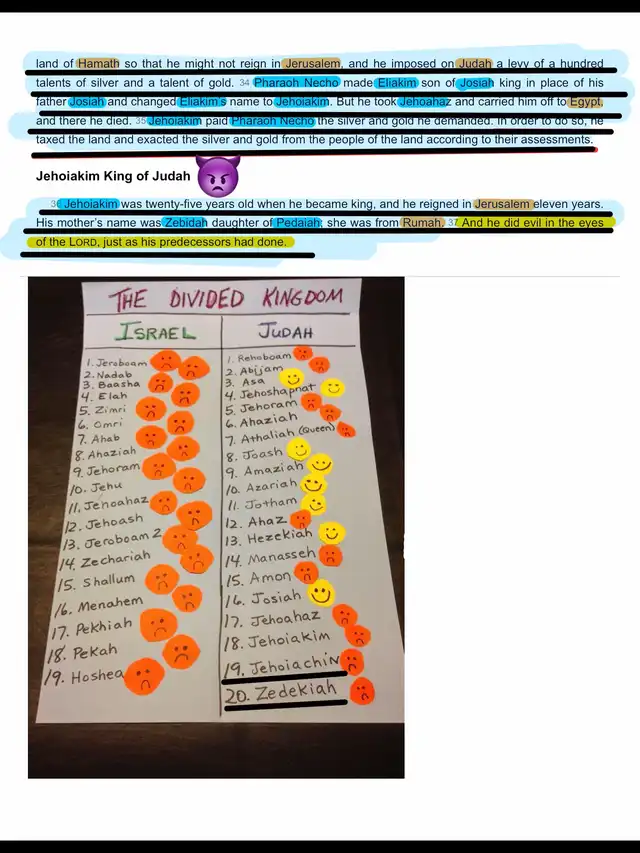 land of Hamath so that he might not reign in Jerusalem, and he imposed on Judah a levy of a hundred
talents of silver and a talent of gold. 34 Pharaoh Necho made Eliakim son of Josiah king in place of his
father Josiah and changed Eliakim's name to Jehoiakim. But he took Jehoahaz and carried him off to Egypt,
and there he died. 35 Jehoiakim paid Pharaoh Necho the silver and gold he demanded. In order to do so, he
taxed the land and exacted the silver and gold from the people of the land according to their assessments.
Jehoiakim King of Judah
36 Jehoiakim was twenty-five years old when he became king, and he reigned in Jerusalem eleven years.
His mother's name was Zebidah daughter of Pedaiah; she was from Rumah. 37 And he did evil in the eyes
of the LORD, just as his predecessors had done.
THE DIVIDED KINGDOM
ISRAEL
1. Jeroboam
2. Nadab
3. Baasha
4. Elah
5. Zimri
6. Omri
7. Ahab
8. Ahaziah
9. Jehoram
10. Jehu
11. Jehoahaz
12. Jehoash
13. Jeroboam 2
14. Zechariah
15. Shallum
16. Menahem
17. Pekhiah
18. Pekah
19. Hoshea
JUDAH
1. Rehoboam
2. Abijam
3. Asa
4. Jehoshaphat
5. Jehoram
6. Ahaziah
7. Athaliah (Queen)
8. Joash
9. Amaziah
10. Azariah
11. Jotham
12. Ahaz
13. Hezekiah
14. Manasseh
15. Amon
16. Josiah
17. Jehoahaz
18. Jehoiakim
19. Jehoiachin
20. Zedekiah